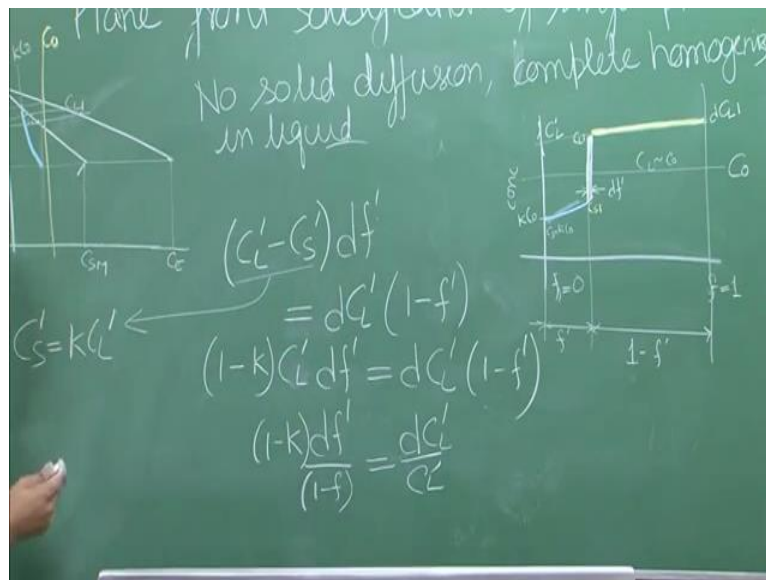 Plane front solidification of single
No solid diffusion, complete homogenis
in liquid
kC₀ C₀
C_SM C_E
(C_L'-C_S')df'
= dC_L'(1-f')
C_S'=kC_L'
(1-k)C_L'df' = dC_L'(1-f')
(1-k)df'/(1-f) = dC_L'/C_L'
C_L' dC_L'
C_L~C₀ C₀
df'
kC₀
f=0 f=1
f' 1-f'